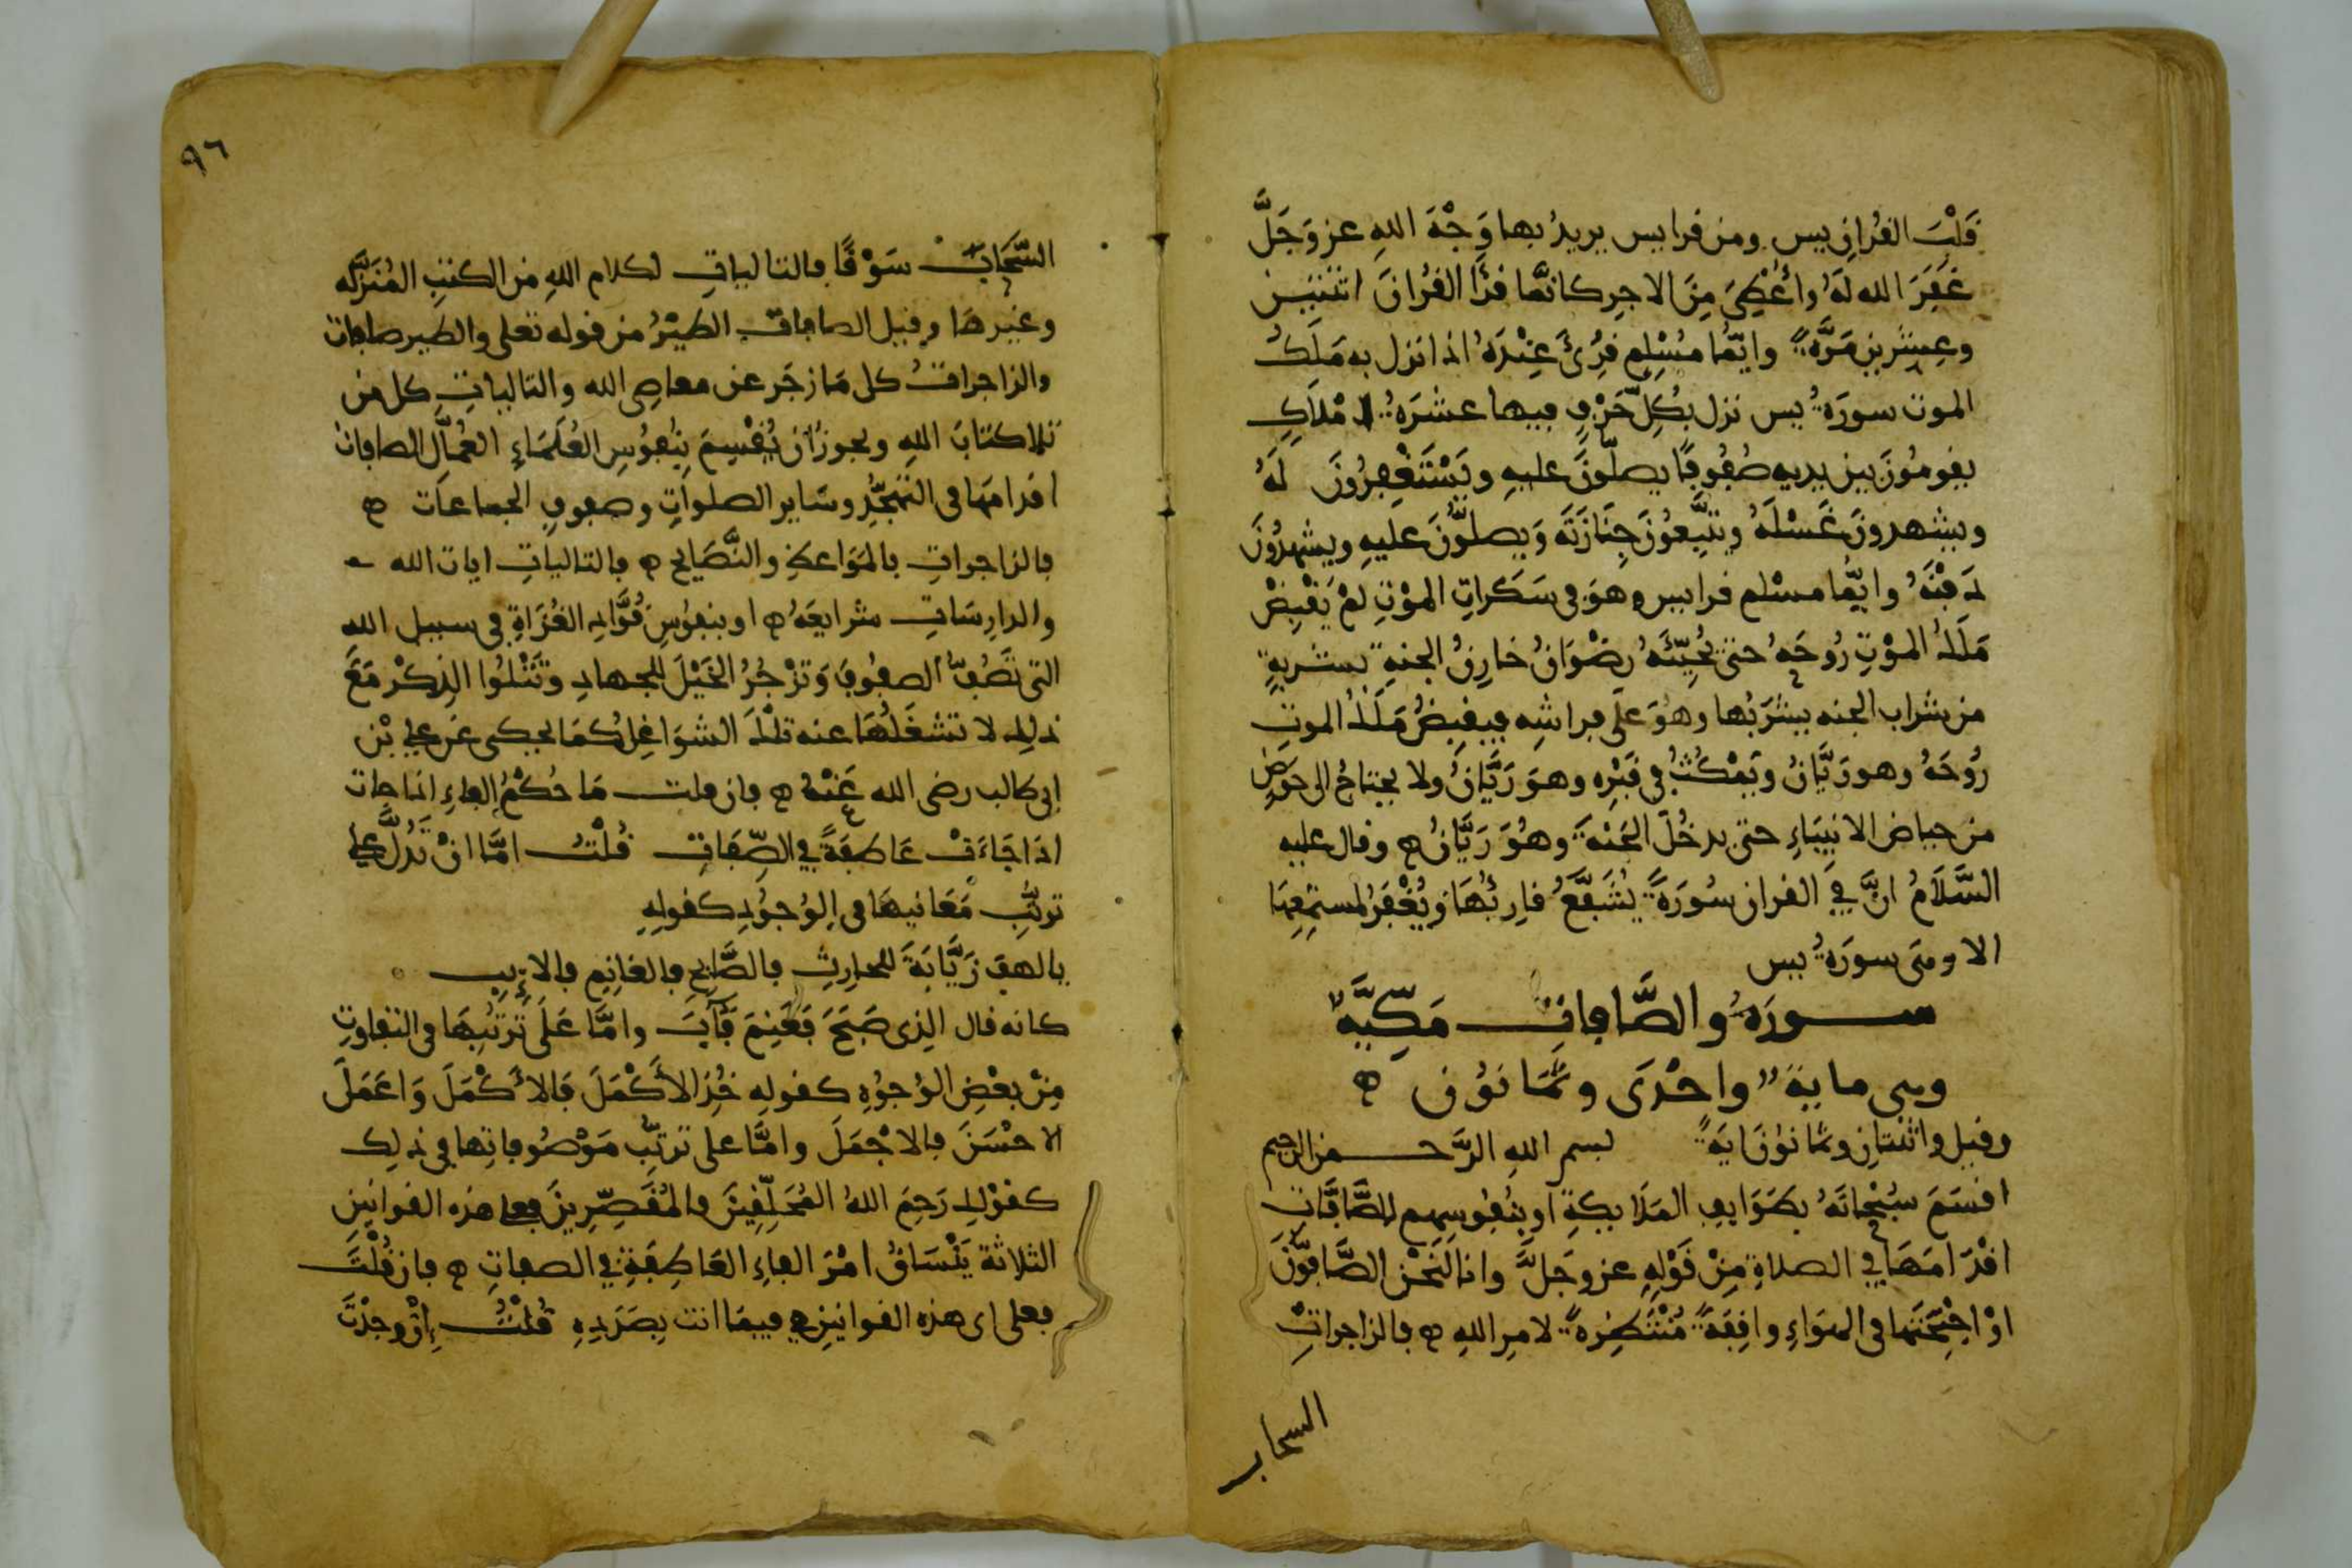 قلب القرآن يس ومن قرأ يس يريد بها وجه الله عز وجل
غفر الله له وأعطي من الاجر كانما قرأ القرآن اثنتين
وعشرين مرة وايما مسلم قرئ عنده اذا نزل به ملك
الموت سورة يس نزل بكل حرف فيها عشرة املاك
يقومون بين يديه صفوفا يصلون عليه ويستغفرون له
ويشهدون غسله ويتبعون جنازته ويصلون عليه ويشهدون
دفنه وايما مسلم قرا يس وهو في سكرات الموت لم يقبض
ملك الموت روحه حتى يحيئه رضوان خازن الجنة بشربة
من شراب الجنه يشربها وهو على فراشه فيقبض ملك الموت
روحه وهو ريان ويمكث في قبره وهو ريان ولا يحتاج الى حوض
من حياض الانبياء حتى يدخل الجنة وهو ريان وقال عليه
السلام ان في القران سورة يشفع قارئها ويغفر لمستمعها
الا وهي سورة يس
سورة والصافات مكية
وهي ماية واحدى وثمانون
وقيل واثنتان وثمانون اية بسم الله الرحمن الرحيم
اقسم سبحانه بطوايف الملايكة او بنفوسهم الصافات
اقدامها في الصلاة من قوله عز وجل وانا لنحن الصافون
او اجنحتها في الهواء واقفة منتظرة لامر الله فالزاجرات
السحاب
٩٦
السحاب سوقا فالتاليات لكلام الله من الكتب المنزله
وغيرها وقيل الصافات الطير من قوله تعلى والطير صافات
والزاجرات كل ما زجر عن معاصي الله والتاليات كل من
تلا كتاب الله ويجوز ان يقسم بنفوس العلماء العمال الصافات
اقدامها في التهجد وساير الصلوات وصفوف الجماعات
فالزاجرات بالمواعظ والنصايح فالتاليات ايات الله
والدارسات شرايعه او بنفوس قواد الغزاة في سبيل الله
التي تصف الصفوف وتزجر الخيل للجهاد وتتلوا الذكر مع
ذلك لا تشغلها عنه تلك الشواغل كما يحكى عن علي بن
ابي طالب رضي الله عنه فان قلت ما حكم الفاء
اذا جاءت عاطفة في الصفات قلت اما ان تدل على
ترتب معانيها في الوجود كقوله
يا لهف زيابة للحارث فالصابح فالغانم فالايب
كانه قال الذي صبح فغنم فآب واما على ترتبها في التفاوت
من بعض الوجوه كقوله خذ الأكمل فالأكمل واعمل
الاحسن فالاجمل واما على ترتب موصوفاتها في ذلك
كقولك رحم الله المحلقين والمقصرين فعلى هذه القوانين
الثلاثة ينساق امر الفاء العاطفة في الصفات فان قلت
فعلى اي هذه القوانين هي فيما انت بصدده قلت إن وحدت